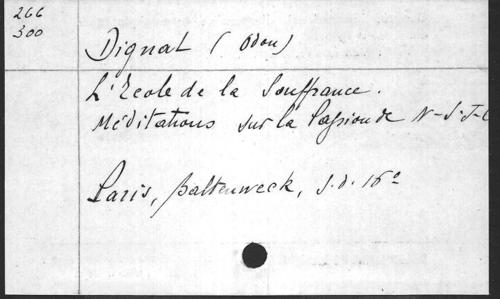 266
300
Dignat (Odon)
L'Ecole de la Souffrance.
Méditations sur la Passion de N-S-J-C
Paris, Baltenweck, s.d. 16º